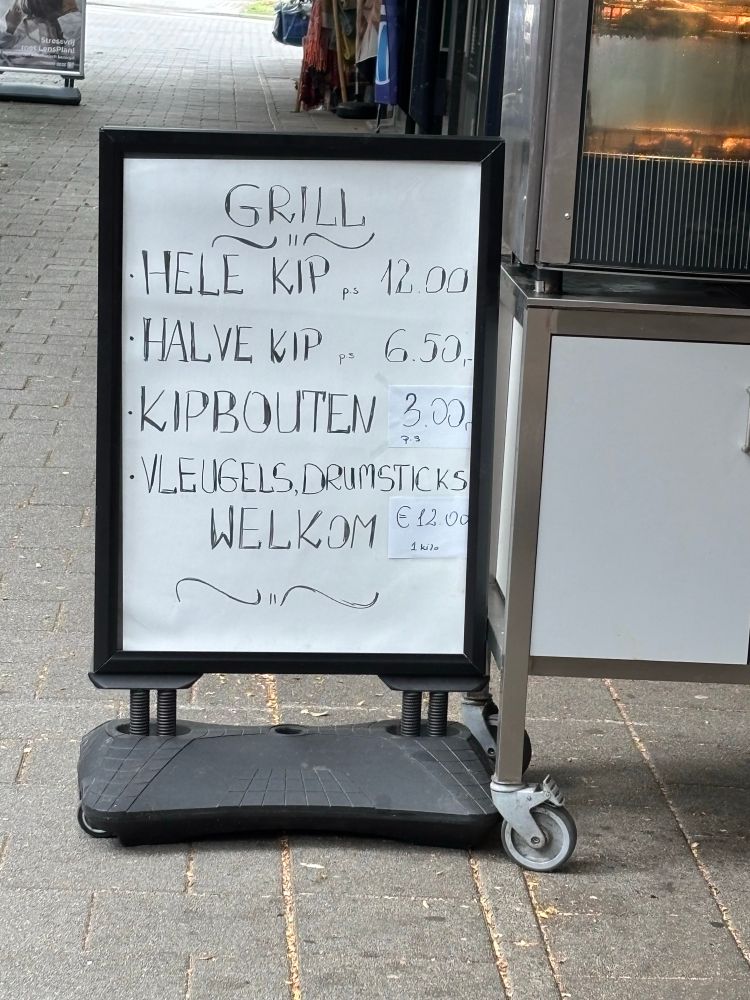 Stressvrij
met LensPlan!
GRILL
· HELE KIP p.s 12.00
· HALVE KIP p.s 6.50,-
· KIPBOUTEN 3.00,-
p.s
· VLEUGELS, DRUMSTICKS
WELKOM € 12.00
1 kilo